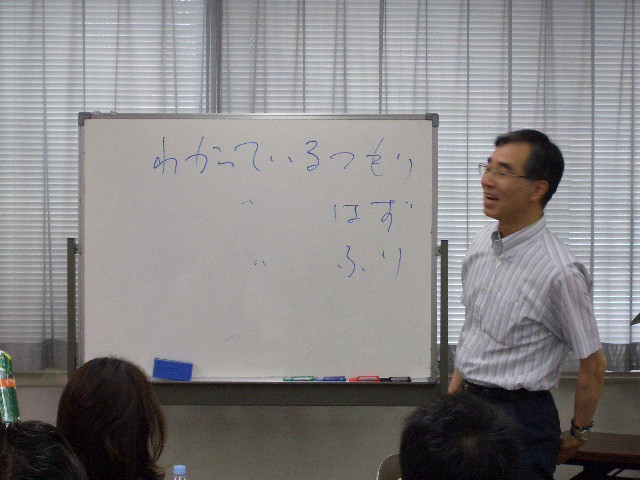 わかっているつもり
〃 はず
〃 ふり